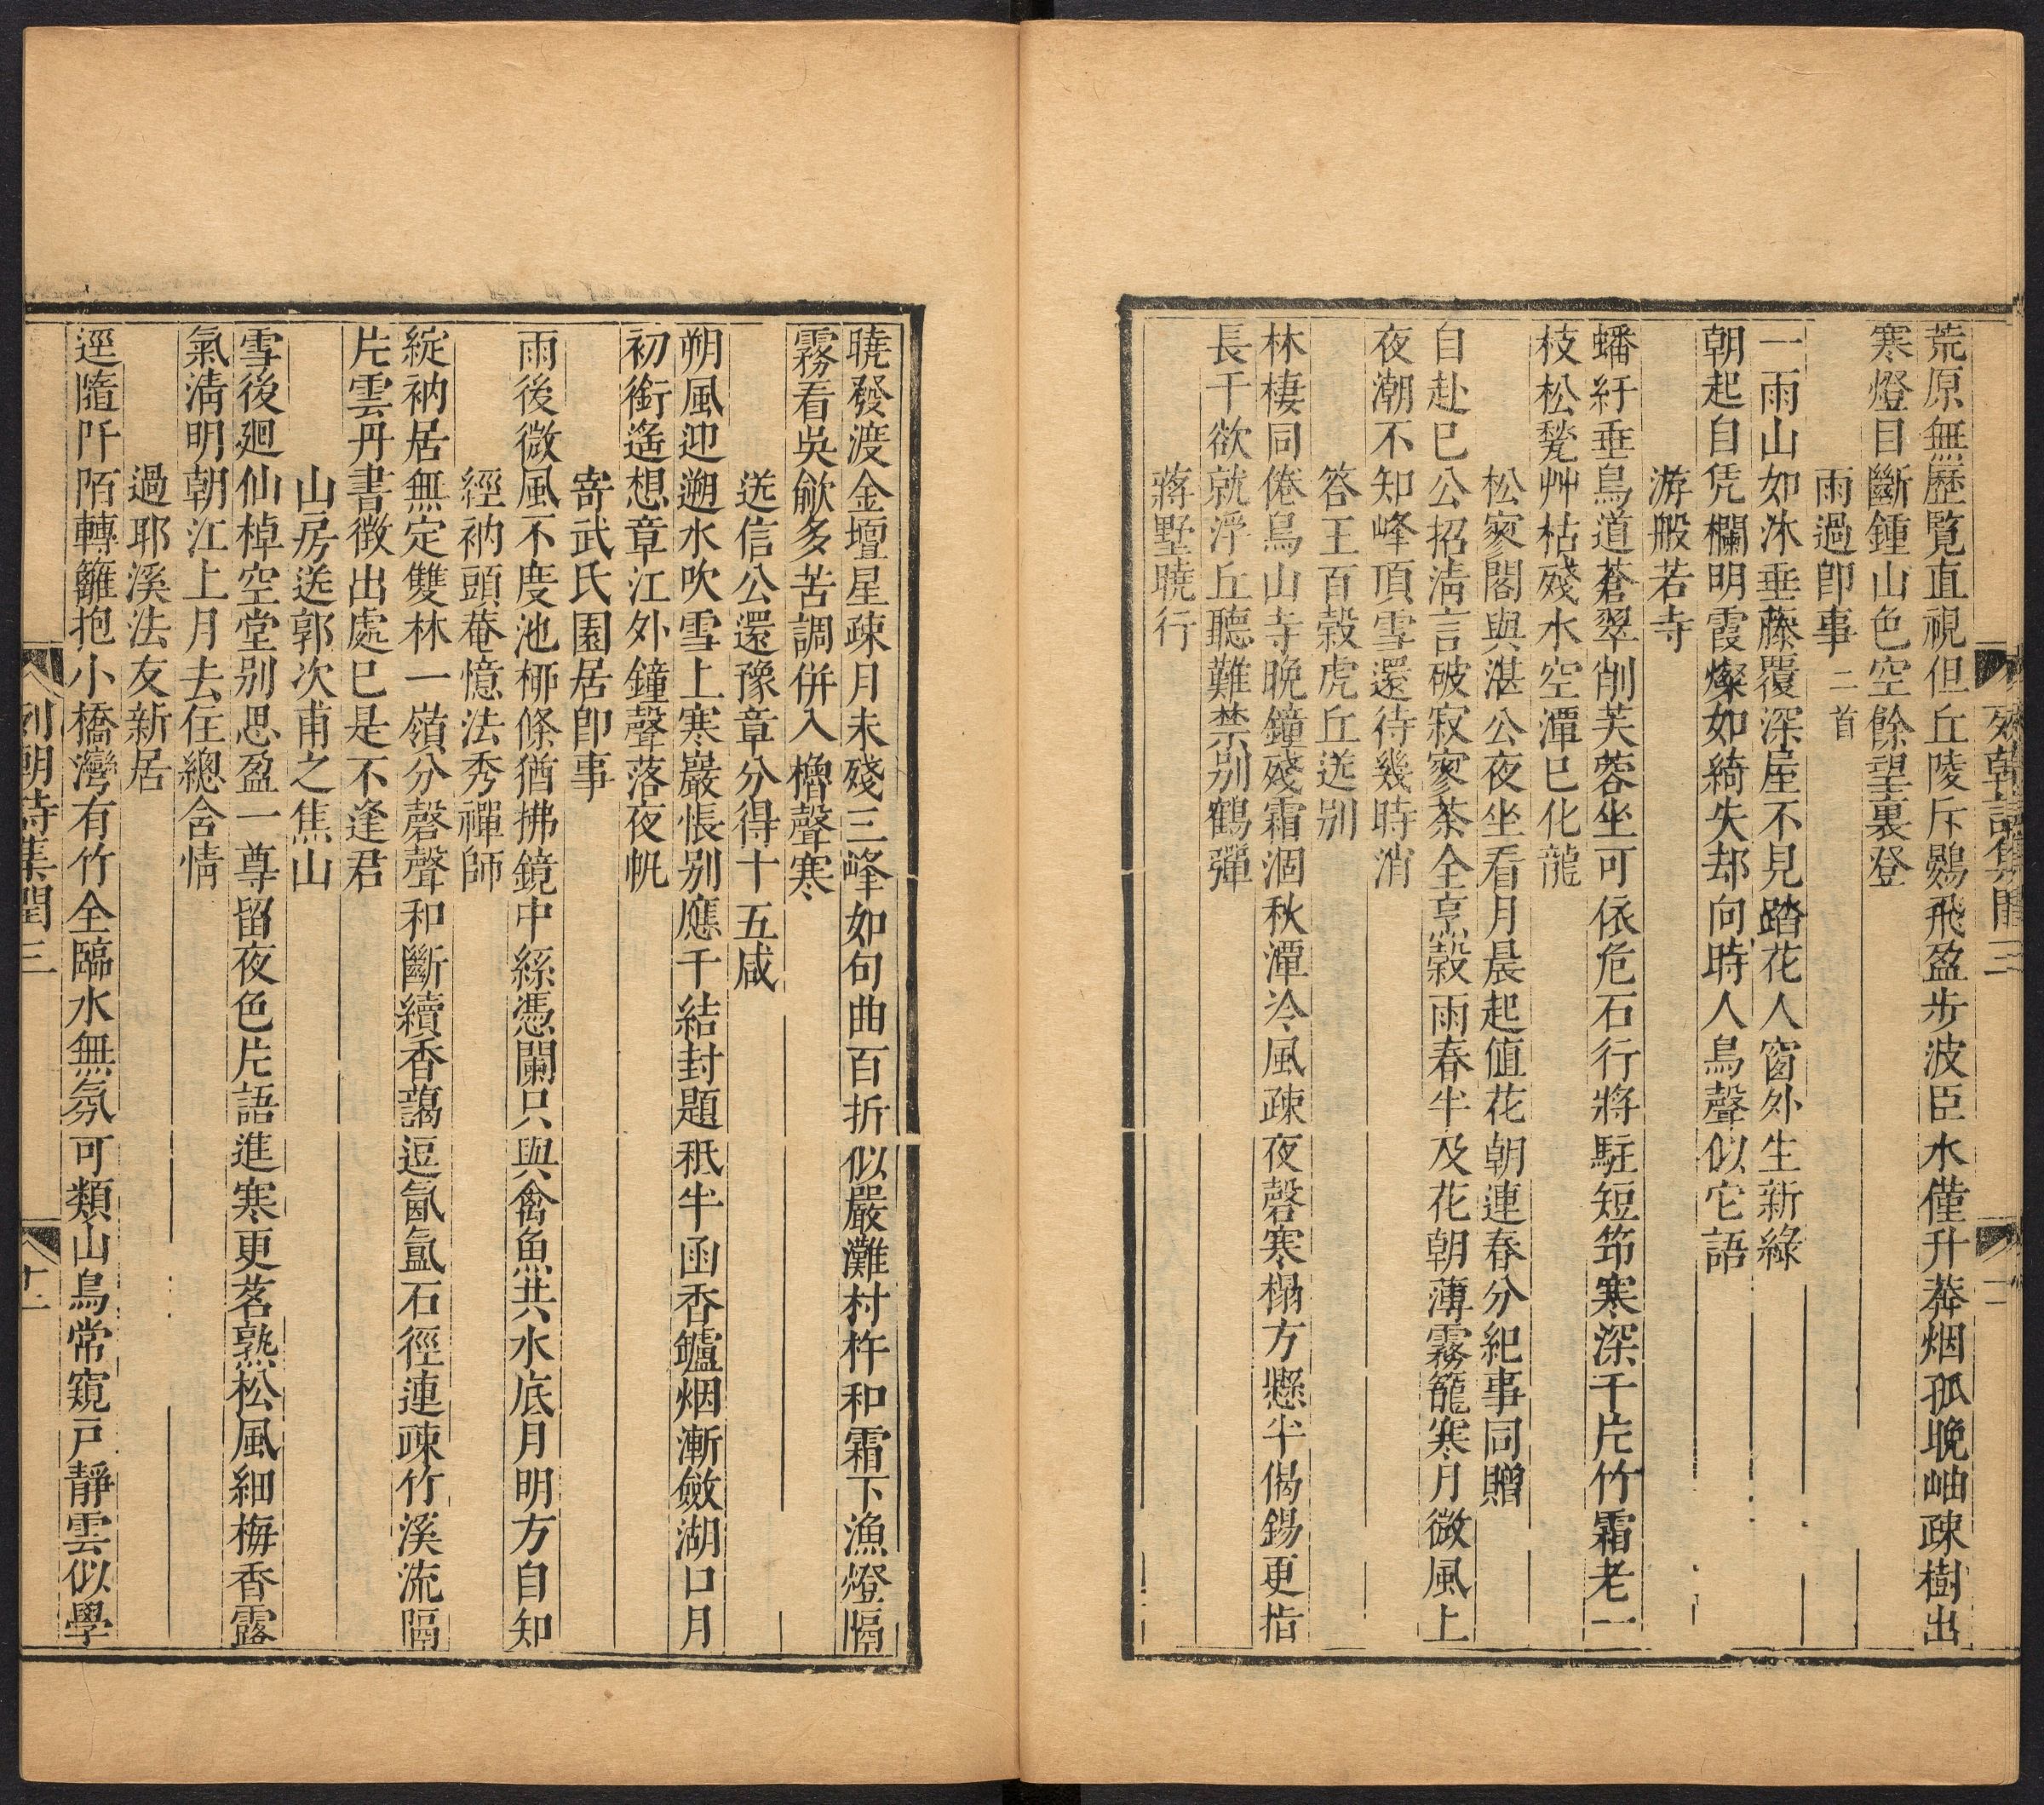 荒原無歷覧直視但丘陵斥鷃飛盈步波臣水僅升莽烟孤晚岫疎樹出
寒燈目斷鍾山色空餘望裏登
雨過即事二首
一雨山如沐垂藤覆深屋不見踏花人窗外生新綠
朝起自凭欄明霞燦如綺失却向時人鳥聲似它語
游般若寺
蟠紆垂鳥道蒼翠削芙蓉坐可依危石行將駐短筇寒深千片竹霜老一
枝松甃艸枯殘水空潭已化龍
松寥閣與湛公夜坐看月晨起值花朝連春分紀事同贈
自赴巳公招淸言破寂寥茶全烹榖雨春半及花朝薄霧籠寒月微風上
夜潮不知峰頂雪還待幾時消
答王百穀虎丘送别
林棲同倦鳥山寺晚鐘殘霜涸秋潭冷風疎夜磬寒榻方懸半偈錫更指
長干欲就浮丘聽難禁别鶴彈
蔣墅曉行
曉發渡金壇星疎月未殘三峰如句曲百折似嚴灘村杵和霜下漁燈隔
霧看吳歈多苦調併入櫓聲寒
送信公還豫章分得十五咸
朔風迎遡水吹雪上寒巖悵别應千結封題秖半函香鑪烟漸斂湖口月
初銜遙想章江外鐘聲落夜帆
寄武氏園居即事
雨後微風不度池栁條猶拂鏡中絲憑闌只與禽魚共水底月明方自知
經衲頭菴憶法秀禪師
綻衲居無定雙林一嶺分磬聲和斷續香藹逗氤氳石徑連疎竹溪流隔
片雲丹書徴出處巳是不逢君
山房送郭次甫之焦山
雪後廻仙棹空堂别思盈一尊留夜色片語進寒更茗熟松風細梅香露
氣淸明朝江上月去住總含情
過耶溪法友新居
逕隨阡陌轉籬抱小橋灣有竹全臨水無氛可類山鳥常窺戸靜雲似學
列朝詩集閏三
十二